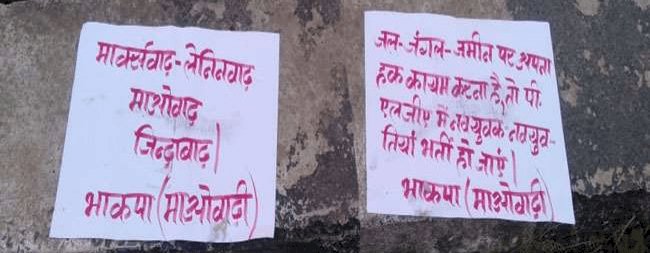 मार्क्सवाद-लेनिनवाद
माओवाद
जिन्दाबाद।
भाकपा (माओवादी)
जल-जंगल-जमीन पर अपना
हक कायम करना है, तो पी.
एलजीए में नवयुवक नवयुव-
तियां भर्ती हो जाएं।
भाकपा (माओवादी)